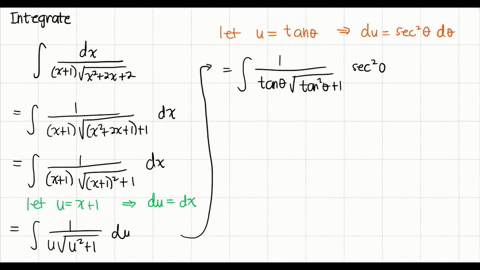 Integrate
∫ dx / (x+1)√x²+2x+2
= ∫ 1 / (x+1)√(x²+2x+1)+1 dx
= ∫ 1 / (x+1)√(x+1)²+1 dx
let u=x+1 ⇒ du=dx
= ∫ 1 / u√u²+1 du
let u=tanθ ⇒ du=sec²θ dθ
= ∫ 1 / tanθ√tan²θ+1 sec²θ